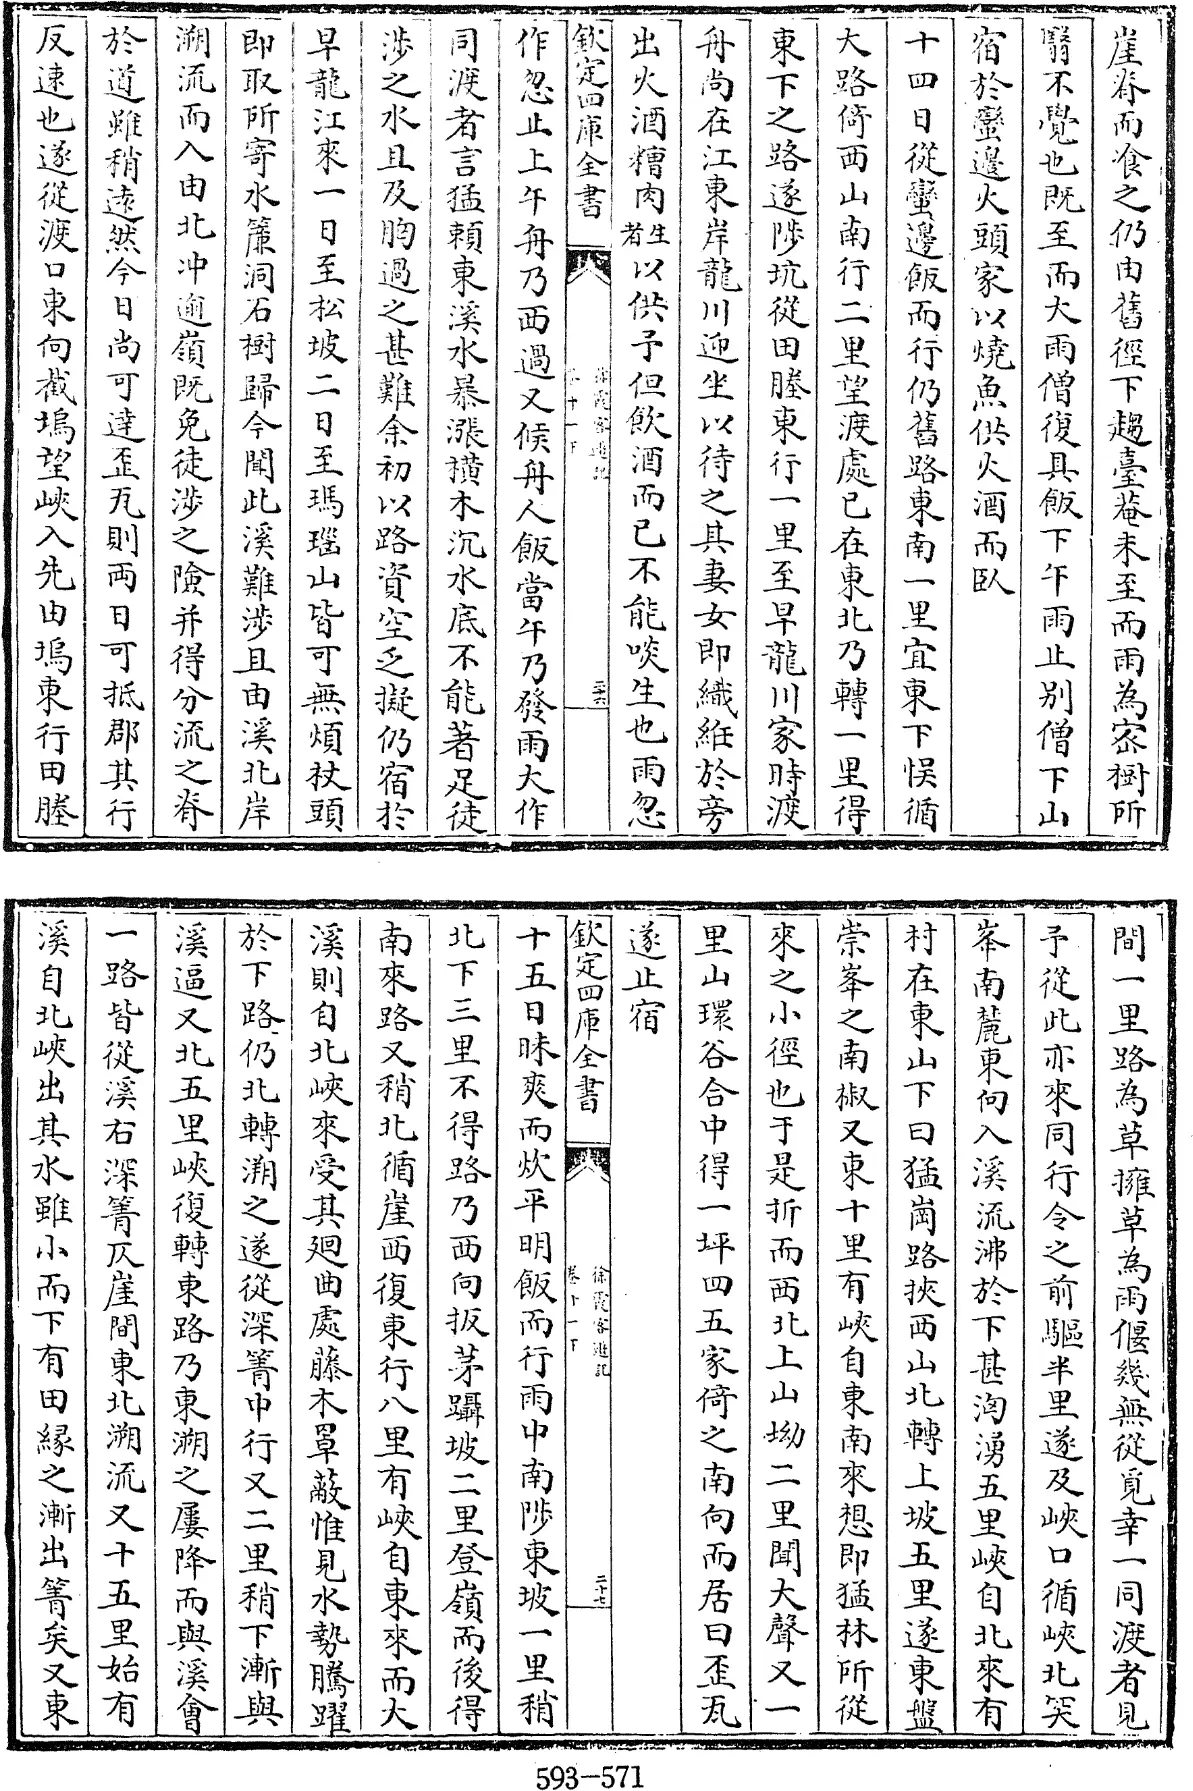 崖脊而飡之仍由舊徑下趨臺菴未至而雨為宻樹所
翳不覺也既至而大雨僧復具飯下午雨止别僧下山
宿於蠻邊火頭家以燒魚供火酒而臥
十四日從蠻邊飯而行仍舊路東南一里宜東下悮循
大路倚西山南行二里望渡處已在東北乃轉一里得
東下之路遂陟坑從田塍東行一里至早龍川家時渡
舟尚在江東岸龍川迎坐以待之其妻女即織絍於旁
出火酒糟肉生者以供予但飲酒而已不能啖生也雨忽
欽定四庫全書
徐霞客遊記
卷十一下
二十六
作忽止上午舟乃西過又候舟人飯當午乃發雨大作
同渡者言猛賴東溪水暴漲横木沉水底不能著足徒
渉之水且及胸過之甚難余初以路資空乏擬仍宿於
早龍江來一日至松坡二日至瑪瑙山皆可無煩杖頭
即取所寄水簾洞石樹歸今聞此溪難渉且由溪北岸
溯流而入由北冲逾嶺既免徒渉之險并得分流之脊
於道雖稍逺然今日尚可達歪瓦則兩日可抵郡其行
反速也遂從渡口東向截塢望峽入先由塢東行田塍
間一里路為草擁草為雨偃幾無從覓幸一同渡者見
予從此亦來同行令之前驅半里遂及峽口循峽北突
峯南麓東向入溪流沸於下甚洶湧五里峽自北來有
村在東山下曰猛崗路挾西山北轉上坡五里遂東盤
崇峯之南椒又東十里有峽自東南來想即猛林所從
來之小徑也于是折而西北上山坳二里聞大聲又一
里山環谷合中得一坪四五家倚之南向而居曰歪瓦
遂止宿
欽定四庫全書
徐霞客遊記
卷十一下
二十七
十五日昧爽而炊平明飯而行雨中南陟東坡一里稍
北下三里不得路乃西向扳茅躡坡二里登嶺而後得
南來路又稍北循崖西復東行八里有峽自東來而大
溪則自北峽來受其廻曲處藤木罩蔽惟見水勢騰躍
於下路仍北轉溯之遂從深箐中行又二里稍下漸與
溪逼又北五里峽復轉東路乃東溯之屢降而與溪會
一路皆從溪右深箐仄崖間東北溯流又十五里始有
溪自北峽出其水雖小而下有田緣之漸出箐矣又東
593-571